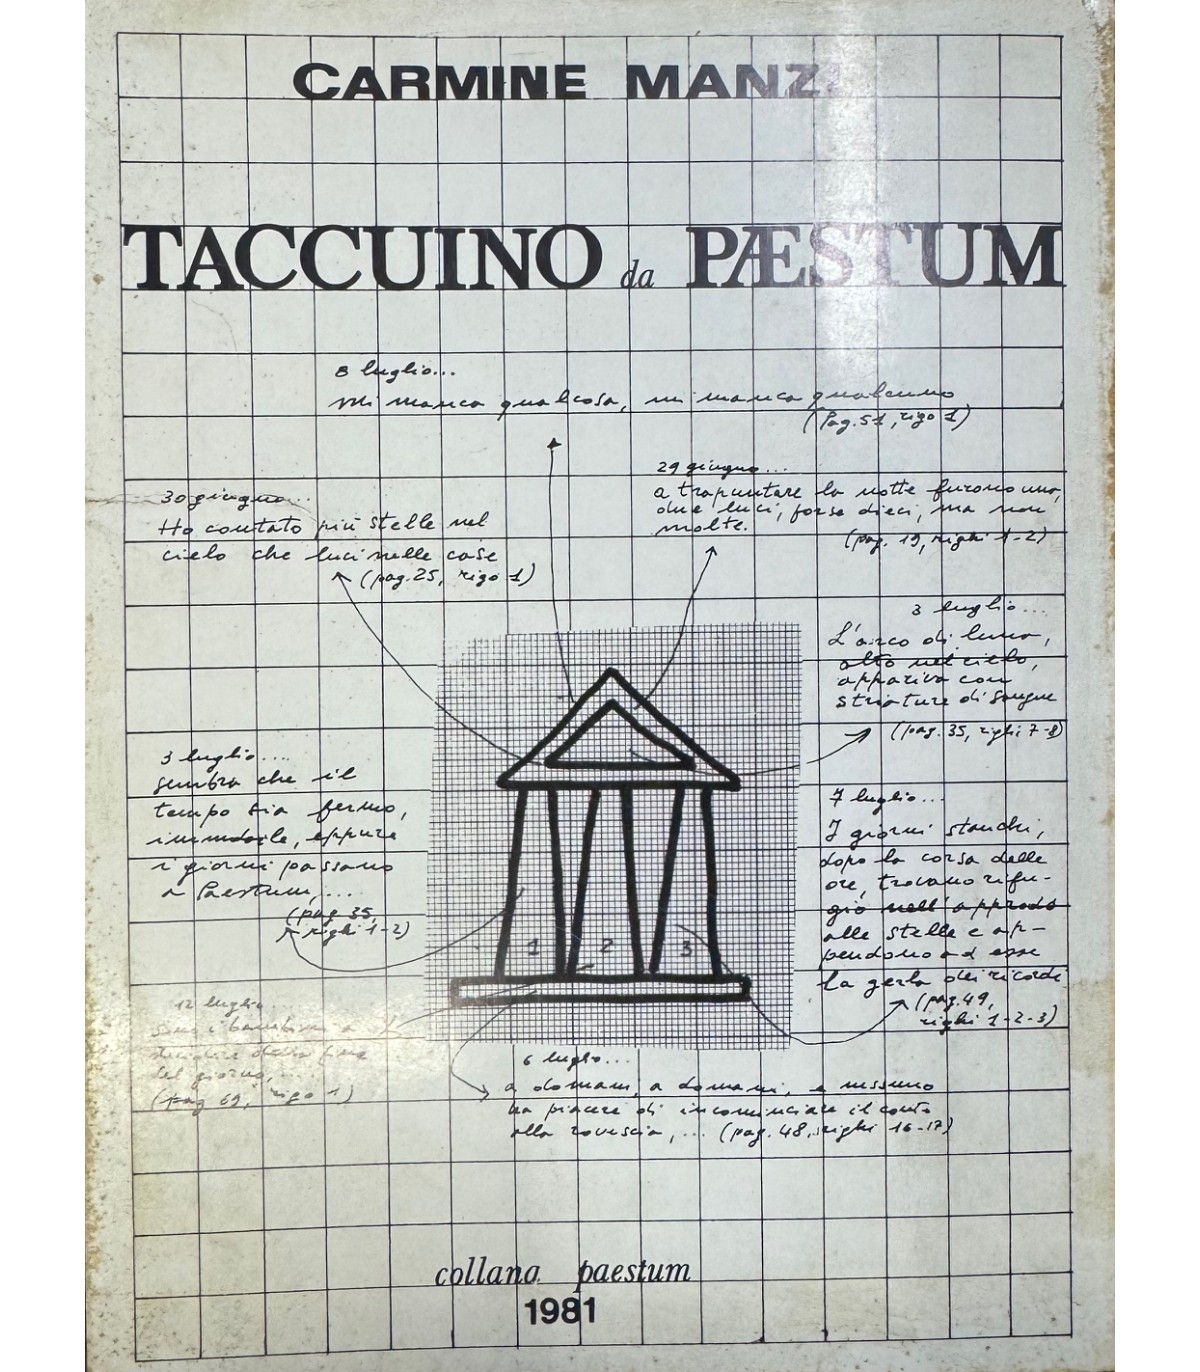 CARMINE MANZ
TACCUINO da PÆSTUM
8 luglio...
mi manca qualcosa, mi manca qualcuno
(Pag. 51, rigo 1)
29 giugno...
a trapuntare la notte furono una,
due luci, forse dieci, ma non
molte.
(pag. 19, righi 1-2)
30 giugno...
Ho contato più stelle nel
cielo che luci nelle case
(pag. 25, rigo 1)
3 luglio...
L'arco di luna,
alto nel cielo,
appariva con
striature di sangue
(pag. 35, righi 7-8)
3 luglio....
sembra che il
tempo sia fermo,
immobile, eppure
i giorni passano
a Paestum,...
(pag 35,
righi 1-2)
7 luglio...
I giorni stanchi,
dopo la corsa delle
ore, trovano rifu-
gio nell'approdo
alle stelle e ap-
pendono ad esse
la gerla dei ricordi
(pag. 49,
righi 1-2-3)
1 2 3
12 luglio...
sono i bambini a
della fine
del giorno,...
(pag 69, rigo 1)
6 luglio...
a domani, a domani, e nessuno
ha piacere di incominciare il conto
alla rovescia,... (pag. 48, righi 16-17)
collana paestum
1981